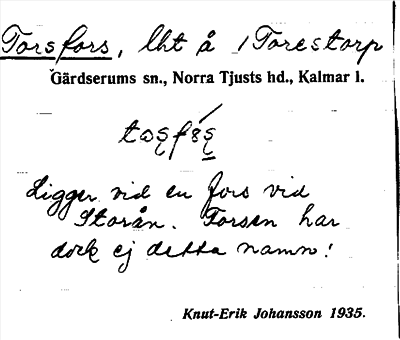 Torsfors, lht å Torestorp
Gärdserums sn., Norra Tjusts hd., Kalmar l.
Ligger vid en fors vid
Storån. Forsen har
dock ej detta namn!
Knut-Erik Johansson 1935.